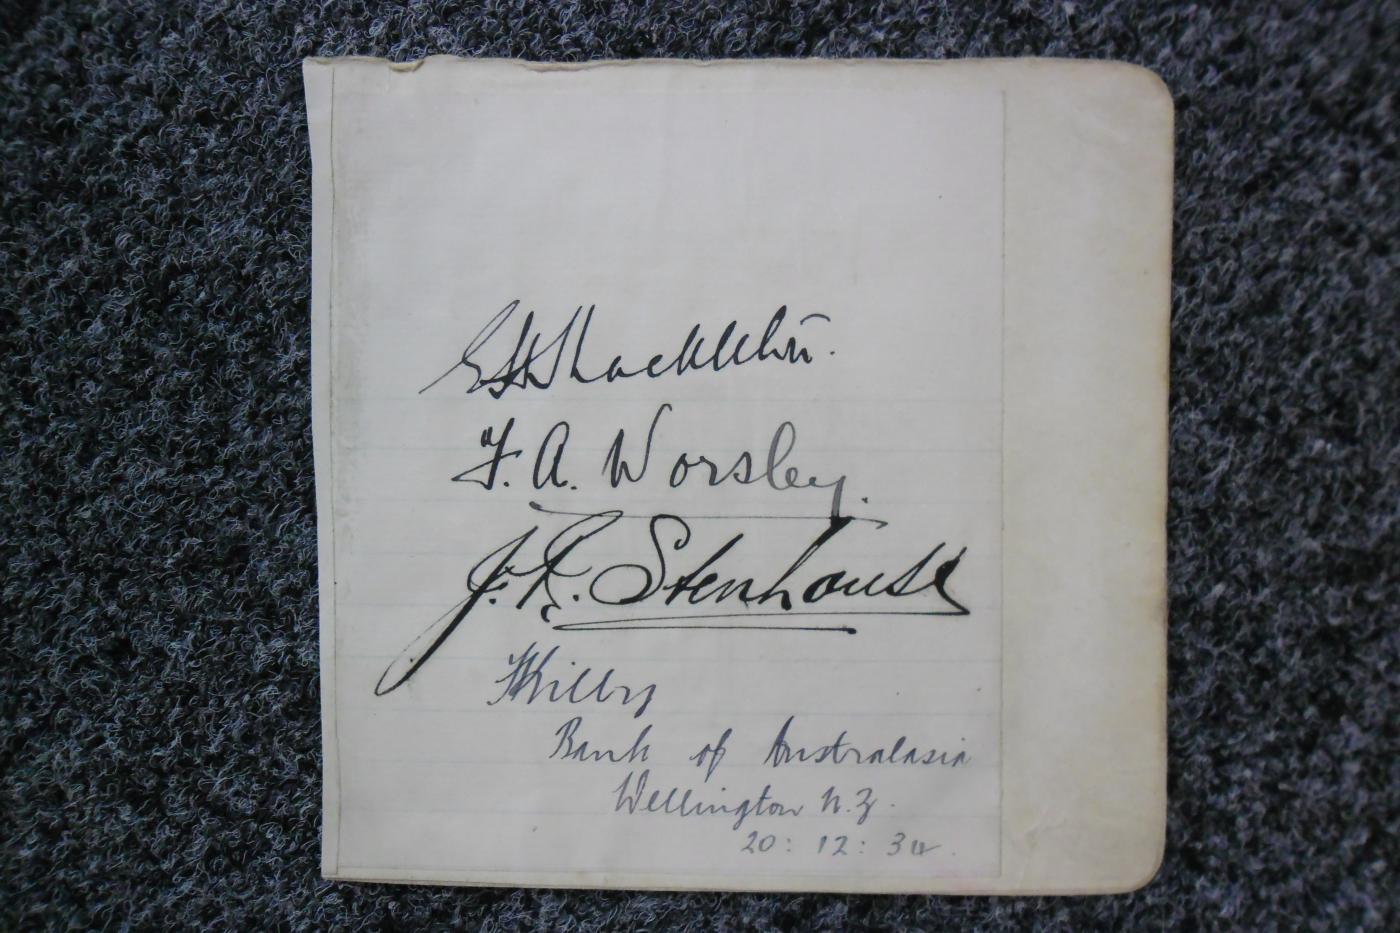 EHShackleton.
F. A. Worsley.
J. R. Stenhouse
Kilby
Bank of Australasia
Wellington N.Z.
20 : 12 : 34.